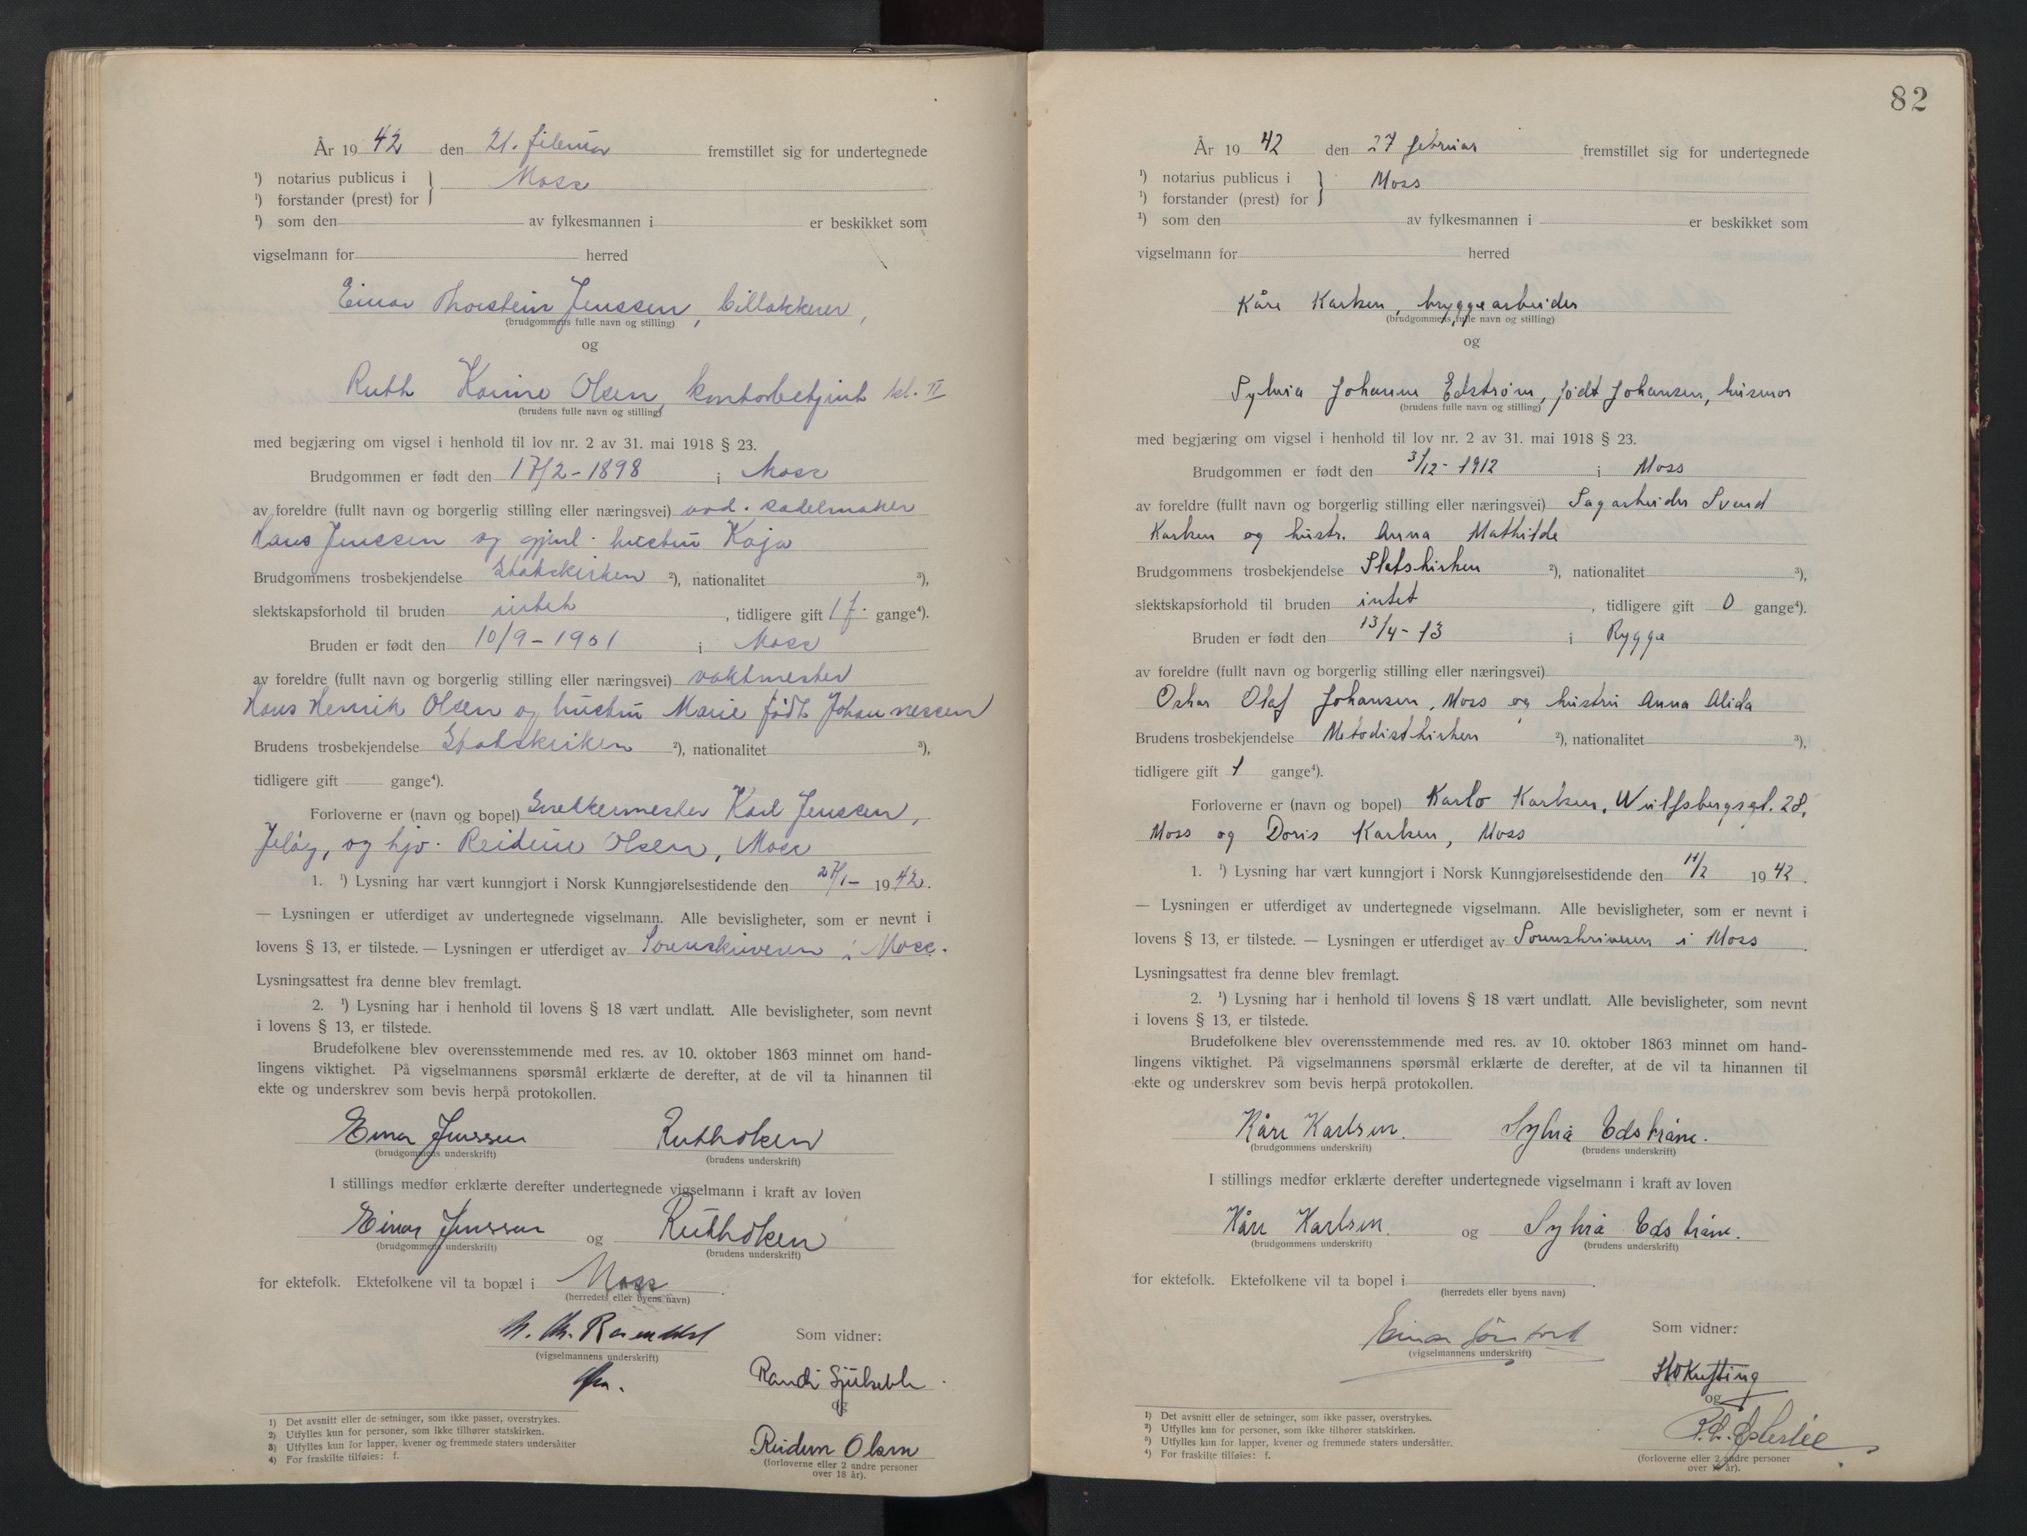 År 1942 den 21. februar fremstillet sig for undertegnede
¹) notarius publicus i } Moss
¹) forstander (prest) for
¹) som den av fylkesmannen i er beskikket som
vigselmann for herred
Einar Thorstein Jenssen, billakkerer,
(brudgommens fulle navn og stilling)
og
Ruth Karine Olsen, kontorbetjent kl. II
(brudens fulle navn og stilling)
med begjæring om vigsel i henhold til lov nr. 2 av 31. mai 1918 § 23.
Brudgommen er født den 17/2-1898 i Moss
av foreldre (fullt navn og borgerlig stilling eller næringsvei) avd. sadelmaker
Hans Jenssen og gjenl. hustru Kaja
Brudgommens trosbekjendelse Statskirken ²), nationalitet ³),
slektskapsforhold til bruden intet, tidligere gift 1 f. gange⁴).
Bruden er født den 10/9-1901 i Moss
av foreldre (fullt navn og borgerlig stilling eller næringsvei) vaktmester
Hans Henrik Olsen og hustru Marie født Johannessen
Brudens trosbekjendelse Statskirken ²), nationalitet ³),
tidligere gift gange⁴).
Forloverne er (navn og bopel) Karl Jenssen,
Jeløy, og hjv. Reidun Olsen, Moss
1. ¹) Lysning har vært kunngjort i Norsk Kunngjørelsestidende den 27/1- 1942.
— Lysningen er utferdiget av undertegnede vigselmann. Alle bevisligheter, som er nevnt i
lovens § 13, er tilstede. — Lysningen er utferdiget av Sorenskriveren i Moss.
Lysningsattest fra denne blev fremlagt.
2. ¹) Lysning har i henhold til lovens § 18 vært undlatt. Alle bevisligheter, som nevnt
i lovens § 13, er tilstede.
Brudefolkene blev overensstemmende med res. av 10. oktober 1863 minnet om hand-
lingens viktighet. På vigselmannens spørsmål erklærte de derefter, at de vil ta hinannen til
ekte og underskrev som bevis herpå protokollen.
Einar Jenssen Ruth Olsen
(brudgommens underskrift) (brudens underskrift)
I stillings medfør erklærte derefter undertegnede vigselmann i kraft av loven
Einar Jenssen og Ruth Olsen
(brudgommens underskrift) (brudens underskrift)
for ektefolk. Ektefolkene vil ta bopæl i Moss.
(herredets eller byens navn)
Som vidner:
(vigselmannens underskrift)
Randi
og
Reidun Olsen
(forloverne eller 2 andre personer
over 18 år).
1) Det avsnitt eller de setninger, som ikke passer, overstrykes.
2) Utfylles kun for personer, som ikke tilhører statskirken.
3) Utfylles kun for lapper, kvener og fremmede staters undersåtter
4) For fraskilte tilføies: f.
82
År 1942 den 27 februar fremstillet sig for undertegnede
¹) notarius publicus i } Moss
¹) forstander (prest) for
¹) som den av fylkesmannen i er beskikket som
vigselmann for herred
Kåre Karlsen, bryggearbeider
(brudgommens fulle navn og stilling)
og
Sylvia Johanne Edstrøm, født Johansen, husmor
(brudens fulle navn og stilling)
med begjæring om vigsel i henhold til lov nr. 2 av 31. mai 1918 § 23.
Brudgommen er født den 3/12-1912 i Moss
av foreldre (fullt navn og borgerlig stilling eller næringsvei) Sagarbeider Svend
Karlsen og hustr. Anna Mathilde
Brudgommens trosbekjendelse Statskirken ²), nationalitet ³),
slektskapsforhold til bruden intet, tidligere gift 0 gange⁴).
Bruden er født den 13/4-13 i Rygge
av foreldre (fullt navn og borgerlig stilling eller næringsvei)
Oskar Olaf Johansen, Moss og hustru Anna Alida
Brudens trosbekjendelse Metodistkirken ²), nationalitet ³),
tidligere gift 1 gange⁴).
Forloverne er (navn og bopel) Karlo Karlsen, Wulfsbergsgt. 28,
Moss og Doris Karlsen, Moss
1. ¹) Lysning har vært kunngjort i Norsk Kunngjørelsestidende den 11/2 1942.
— Lysningen er utferdiget av undertegnede vigselmann. Alle bevisligheter, som er nevnt i
lovens § 13, er tilstede. — Lysningen er utferdiget av Sorenskriveren i Moss.
Lysningsattest fra denne blev fremlagt.
2. ¹) Lysning har i henhold til lovens § 18 vært undlatt. Alle bevisligheter, som nevnt
i lovens § 13, er tilstede.
Brudefolkene blev overensstemmende med res. av 10. oktober 1863 minnet om hand-
lingens viktighet. På vigselmannens spørsmål erklærte de derefter, at de vil ta hinannen til
ekte og underskrev som bevis herpå protokollen.
Kåre Karlsen. Sylvia Edstrøm.
(brudgommens underskrift) (brudens underskrift)
I stillings medfør erklærte derefter undertegnede vigselmann i kraft av loven
Kåre Karlsen. og Sylvia Edstrøm.
(brudgommens underskrift) (brudens underskrift)
for ektefolk. Ektefolkene vil ta bopel i
(herredets eller byens navn)
Einar
Som vidner:
(vigselmannens underskrift)
og
(forloverne eller 2 andre personer
over 18 år).
1) Det avsnitt eller de setninger, som ikke passer, overstrykes.
2) Utfylles kun for personer, som ikke tilhører statskirken.
3) Utfylles kun for lapper, kvener og fremmede staters undersåtter.
4) For fraskilte tilføies: f.